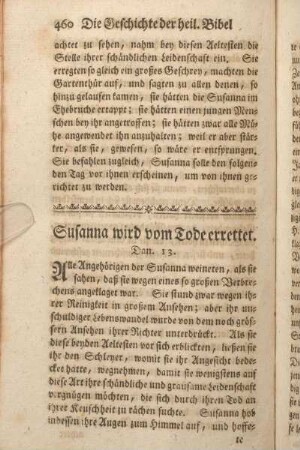 460 Die Geschichte der heil. Bibel
achtet zu sehen, nahm bey diesen Aeltesten die
Stelle ihrer schändlichen Leidenschaft ein. Sie
erregten so gleich ein großes Geschrey, machten die
Gartenthür auf, und sagten zu allen denen, so
hinzu gelaufen kamen; sie hätten die Susanna im
Ehebruche ertappt; sie hätten einen jungen Men-
schen bey ihr angetroffen; sie hätten zwar alle Mühe
angewendet ihn anzuhalten; weil er aber stär-
ker, als sie, gewesen, so wäre er entsprungen.
Sie befahlen zugleich, Susanna solle den folgen-
den Tag vor ihnen erscheinen, um von ihnen ge-
richtet zu werden.
Susanna wird vom Tode errettet.
Dan. 13.
Alle Angehörigen der Susanna weineten, als sie
sahen, daß sie wegen eines so großen Verbre-
chens angeklaget war. Sie stund zwar wegen ihr-
rer Reinigkeit in großem Ansehen; aber ihr un-
schuldiger Lebenswandel wurde von dem noch grös-
sern Ansehen ihrer Richter unterdrückt. Als sie
diese beyden Aeltesten vor sich erblickten, ließen sie
ihr den Schleyer, womit sie ihr Angesicht bedec-
ket hatte, wegnehmen, damit sie wenigstens auf
diese Art ihre schändliche und grausame Leidenschaft
vergnügen möchten, die sich durch ihren Tod an
ihrer Keuschheit zu rächen suchte. Susanna hob
indessen ihre Augen zum Himmel auf, und hoffe-
te